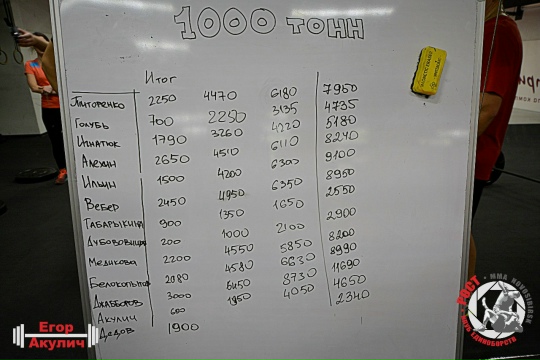 1000 тонн
Итог
Питоренко 2250 4470 6180 7950
Голубь 700 2250 3135 4735
Игнатюк 1790 3260 4220 5180
Алехин 2650 4510 6110 8240
Ильин 1500 4200 6300 9100
Вебер 2450 4950 6350 8950
Табарыкина 900 1350 1650 2550
Дубововицк 200 1000 2100 2900
Медикова 2200 4550 5850 8200
Белокопытов 2080 4580 6630 8990
Джабборов 3000 6450 8730 11690
Акулич 600 1950 4050 4650
Дедов 1900 2340
Егор
Акулич
РОСТ
MMA NOVOSIBIRSK
КЛУБ ЕДИНОБОРСТВ